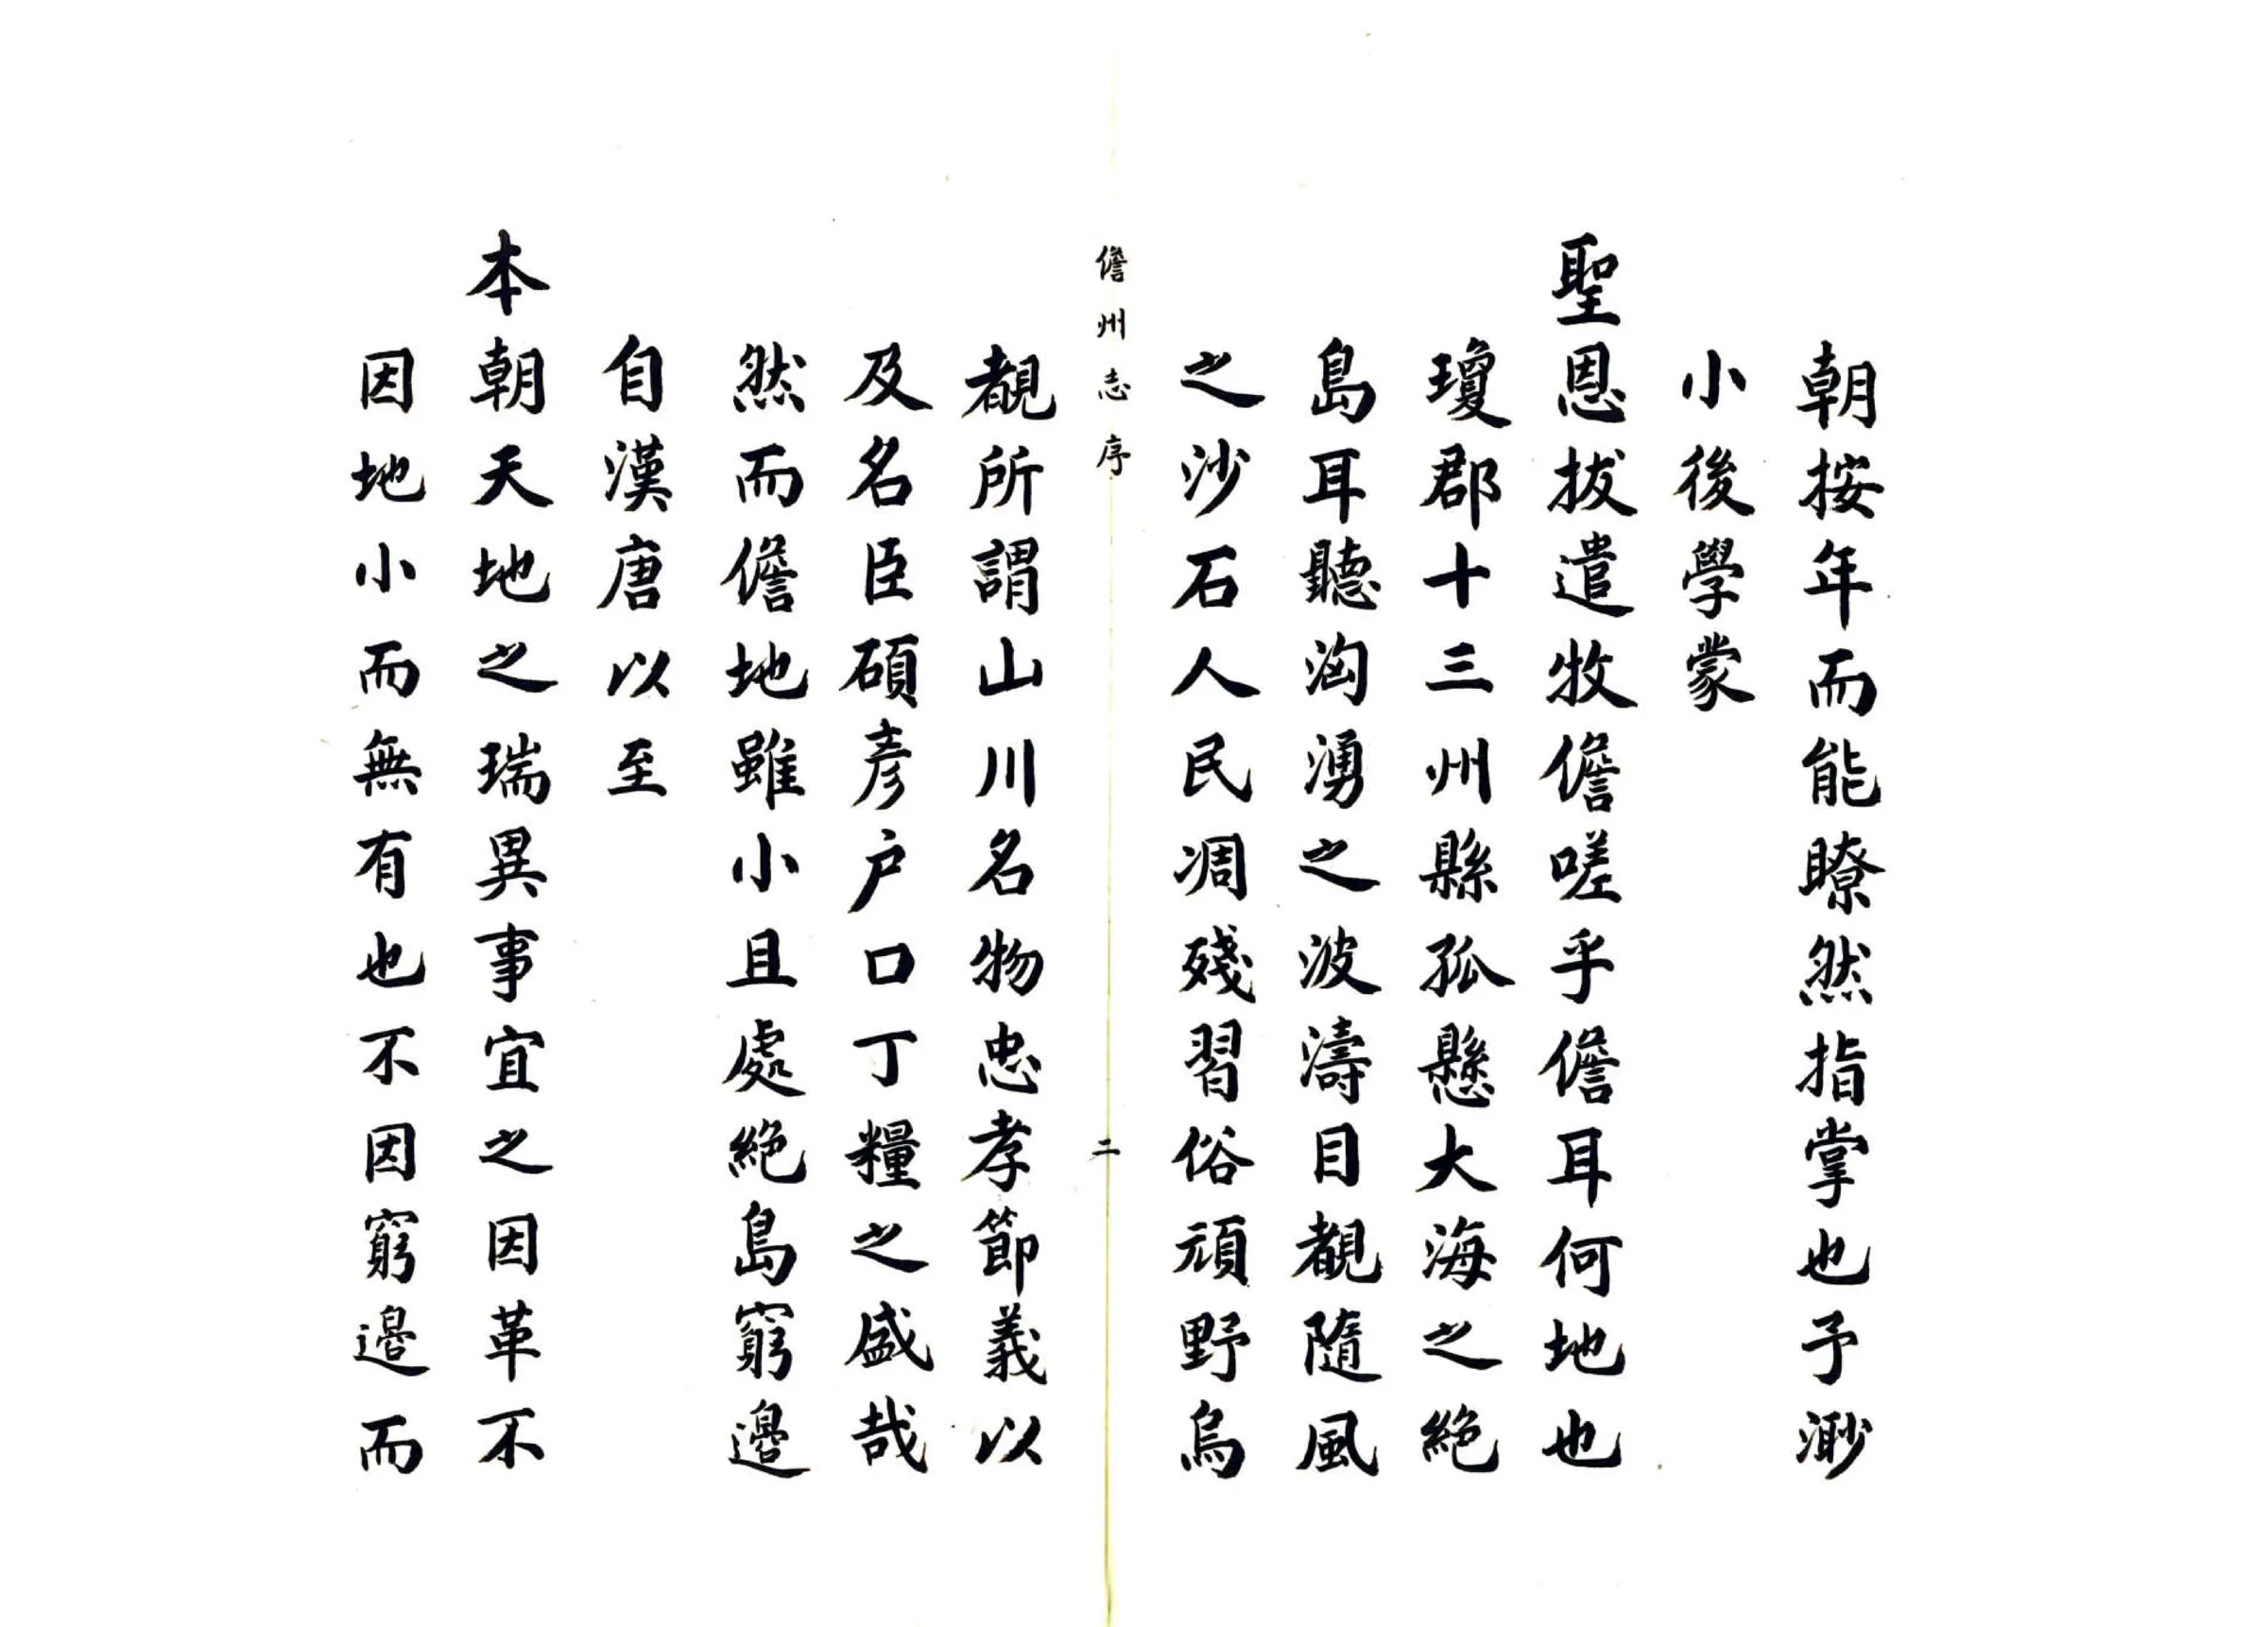 朝按年而能瞭然指掌也予渺
小後學蒙
聖恩拔遣牧儋嗟乎儋耳何地也
瓊郡十三州縣孤懸大海之絕
島耳聽洶湧之波濤目覩隨風
之沙石人民凋殘習俗頑野烏
儋州志 序 二
覩所謂山川名物忠孝節義以
及名臣碩彥户口丁糧之盛哉
然而儋地雖小且處絕島窮邊
自漢唐以至
本朝天地之瑞異事宜之因革不
因地小而無有也不因窮邊而